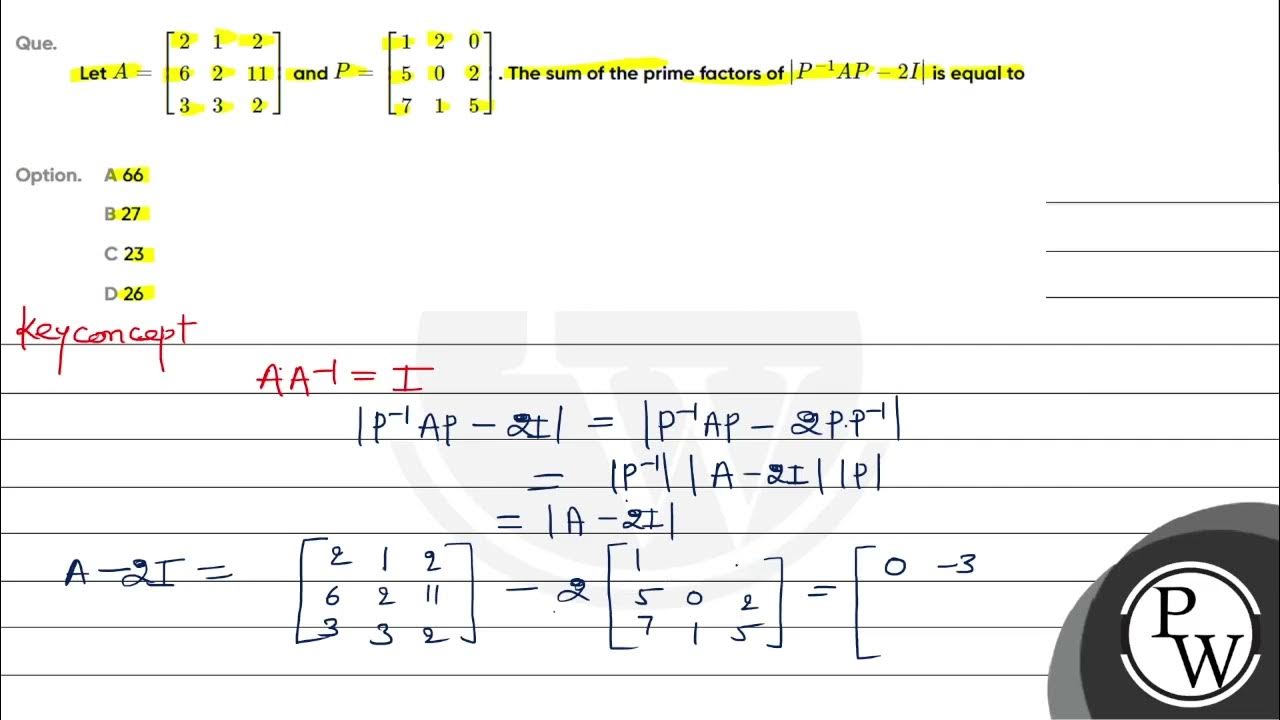 Que.
Let A = [2 1 2; 6 2 11; 3 3 2] and P = [1 2 0; 5 0 2; 7 1 5]. The sum of the prime factors of |P⁻¹AP − 2I| is equal to
Option. A 66
B 27
C 23
D 26
Key concept
AA⁻¹ = I
|P⁻¹AP − 2I| = |P⁻¹AP − 2P.P⁻¹|
= |P⁻¹| |A − 2I| |P|
= |A − 2I|
A − 2I = [2 1 2; 6 2 11; 3 3 2] − 2 [1; 5 0 2; 7 1 5] = [0 −3
P
W